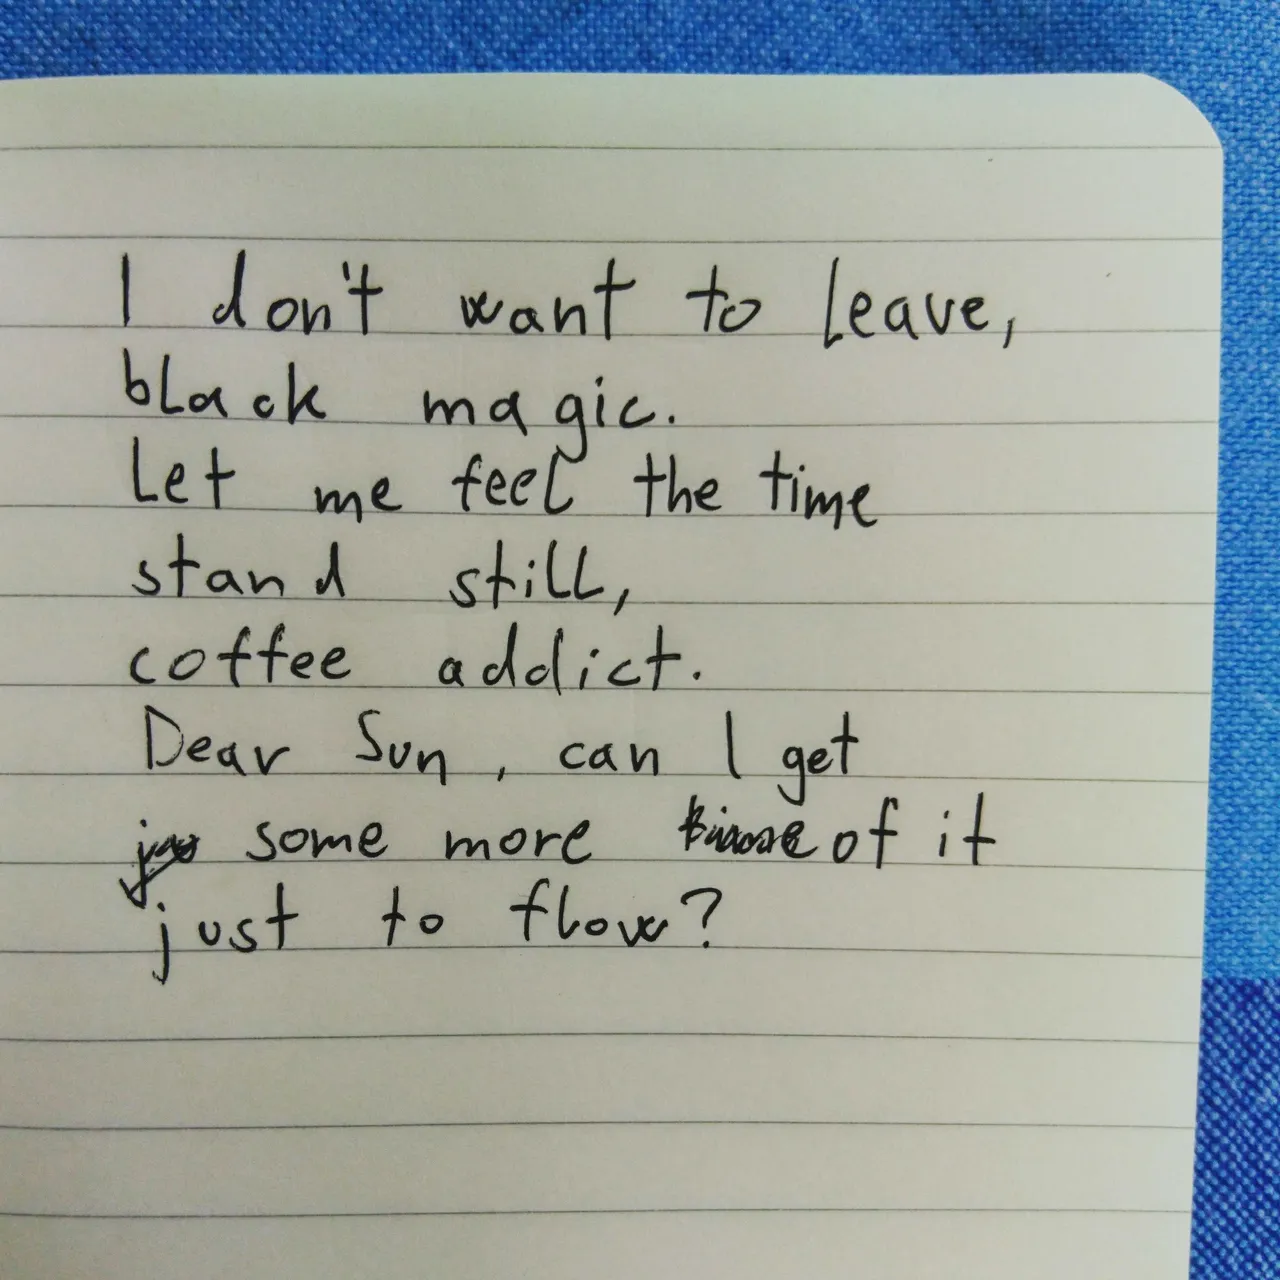 I don't want to leave,
black magic.
Let me feel the time
stand still,
coffee addict.
Dear Sun, can I get
some more of it
just to flow?